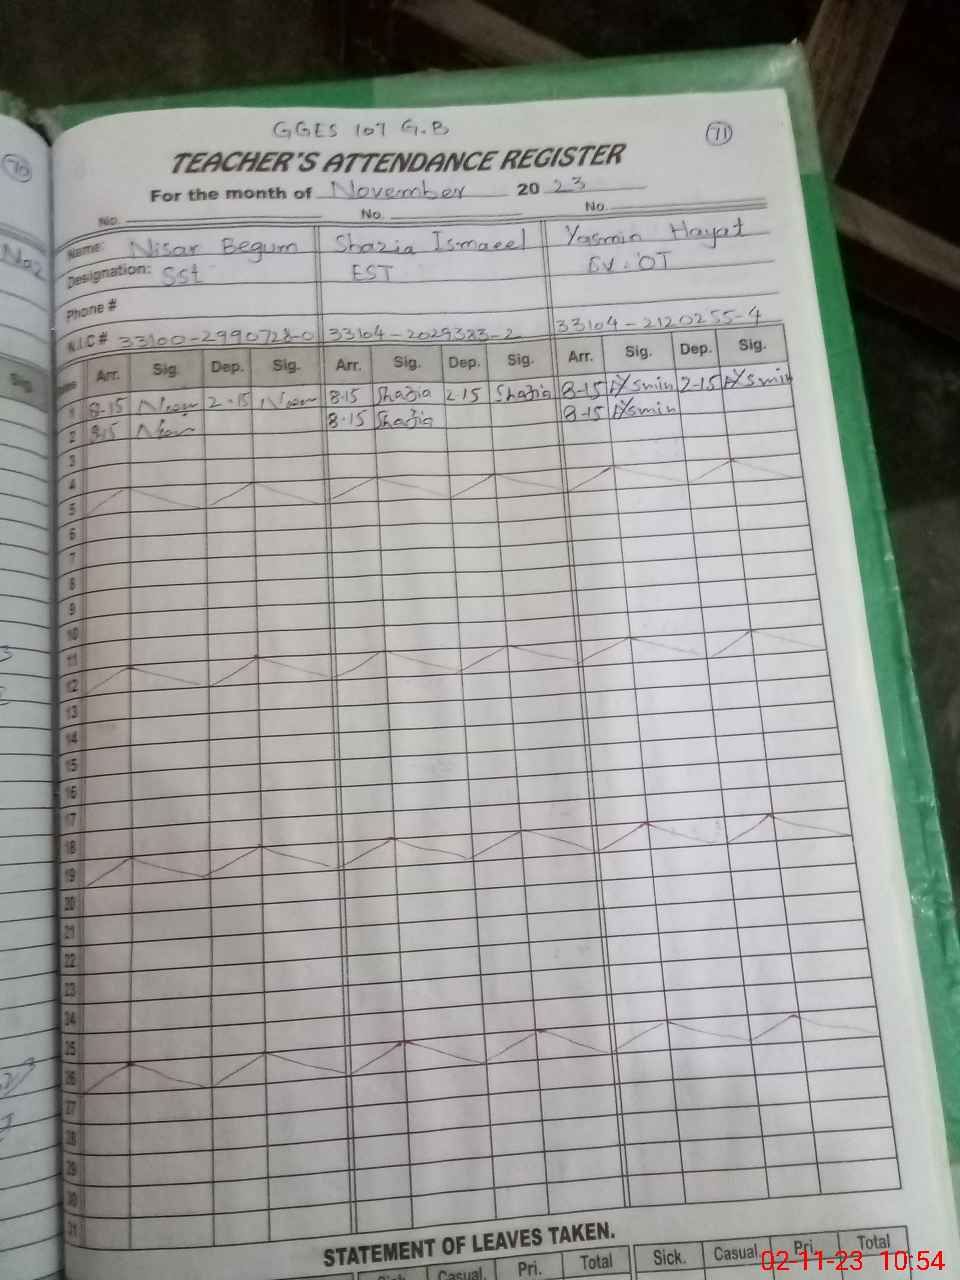 GGES 107 G.B
71
70
TEACHER'S ATTENDANCE REGISTER
For the month of November 20 23
No. No. No.
Name: Nisar Begum Shazia Ismaeel Yasmin Hayat
Designation: SSt EST
Phone #
N.I.C # 33100-2990728-0 33104-2029383-2 33104-2120255-4
Arr. Sig. Dep. Sig. Arr. Sig. Dep. Sig. Arr. Sig. Dep. Sig.
1 8-15 2-15 8-15 Shazia 2-15 Shazia 8-15 Yasmin 2-15 Yasmin
2 8-15 8-15 Shazia 8-15 Yasmin
3
4
5
6
7
8
9
10
11
12
13
14
15
16
17
18
19
20
21
22
23
24
25
26
27
28
29
30
31
STATEMENT OF LEAVES TAKEN.
Sick. Casual. Pri. Total Sick. Casual Pri. Total
02-11-23 10:54